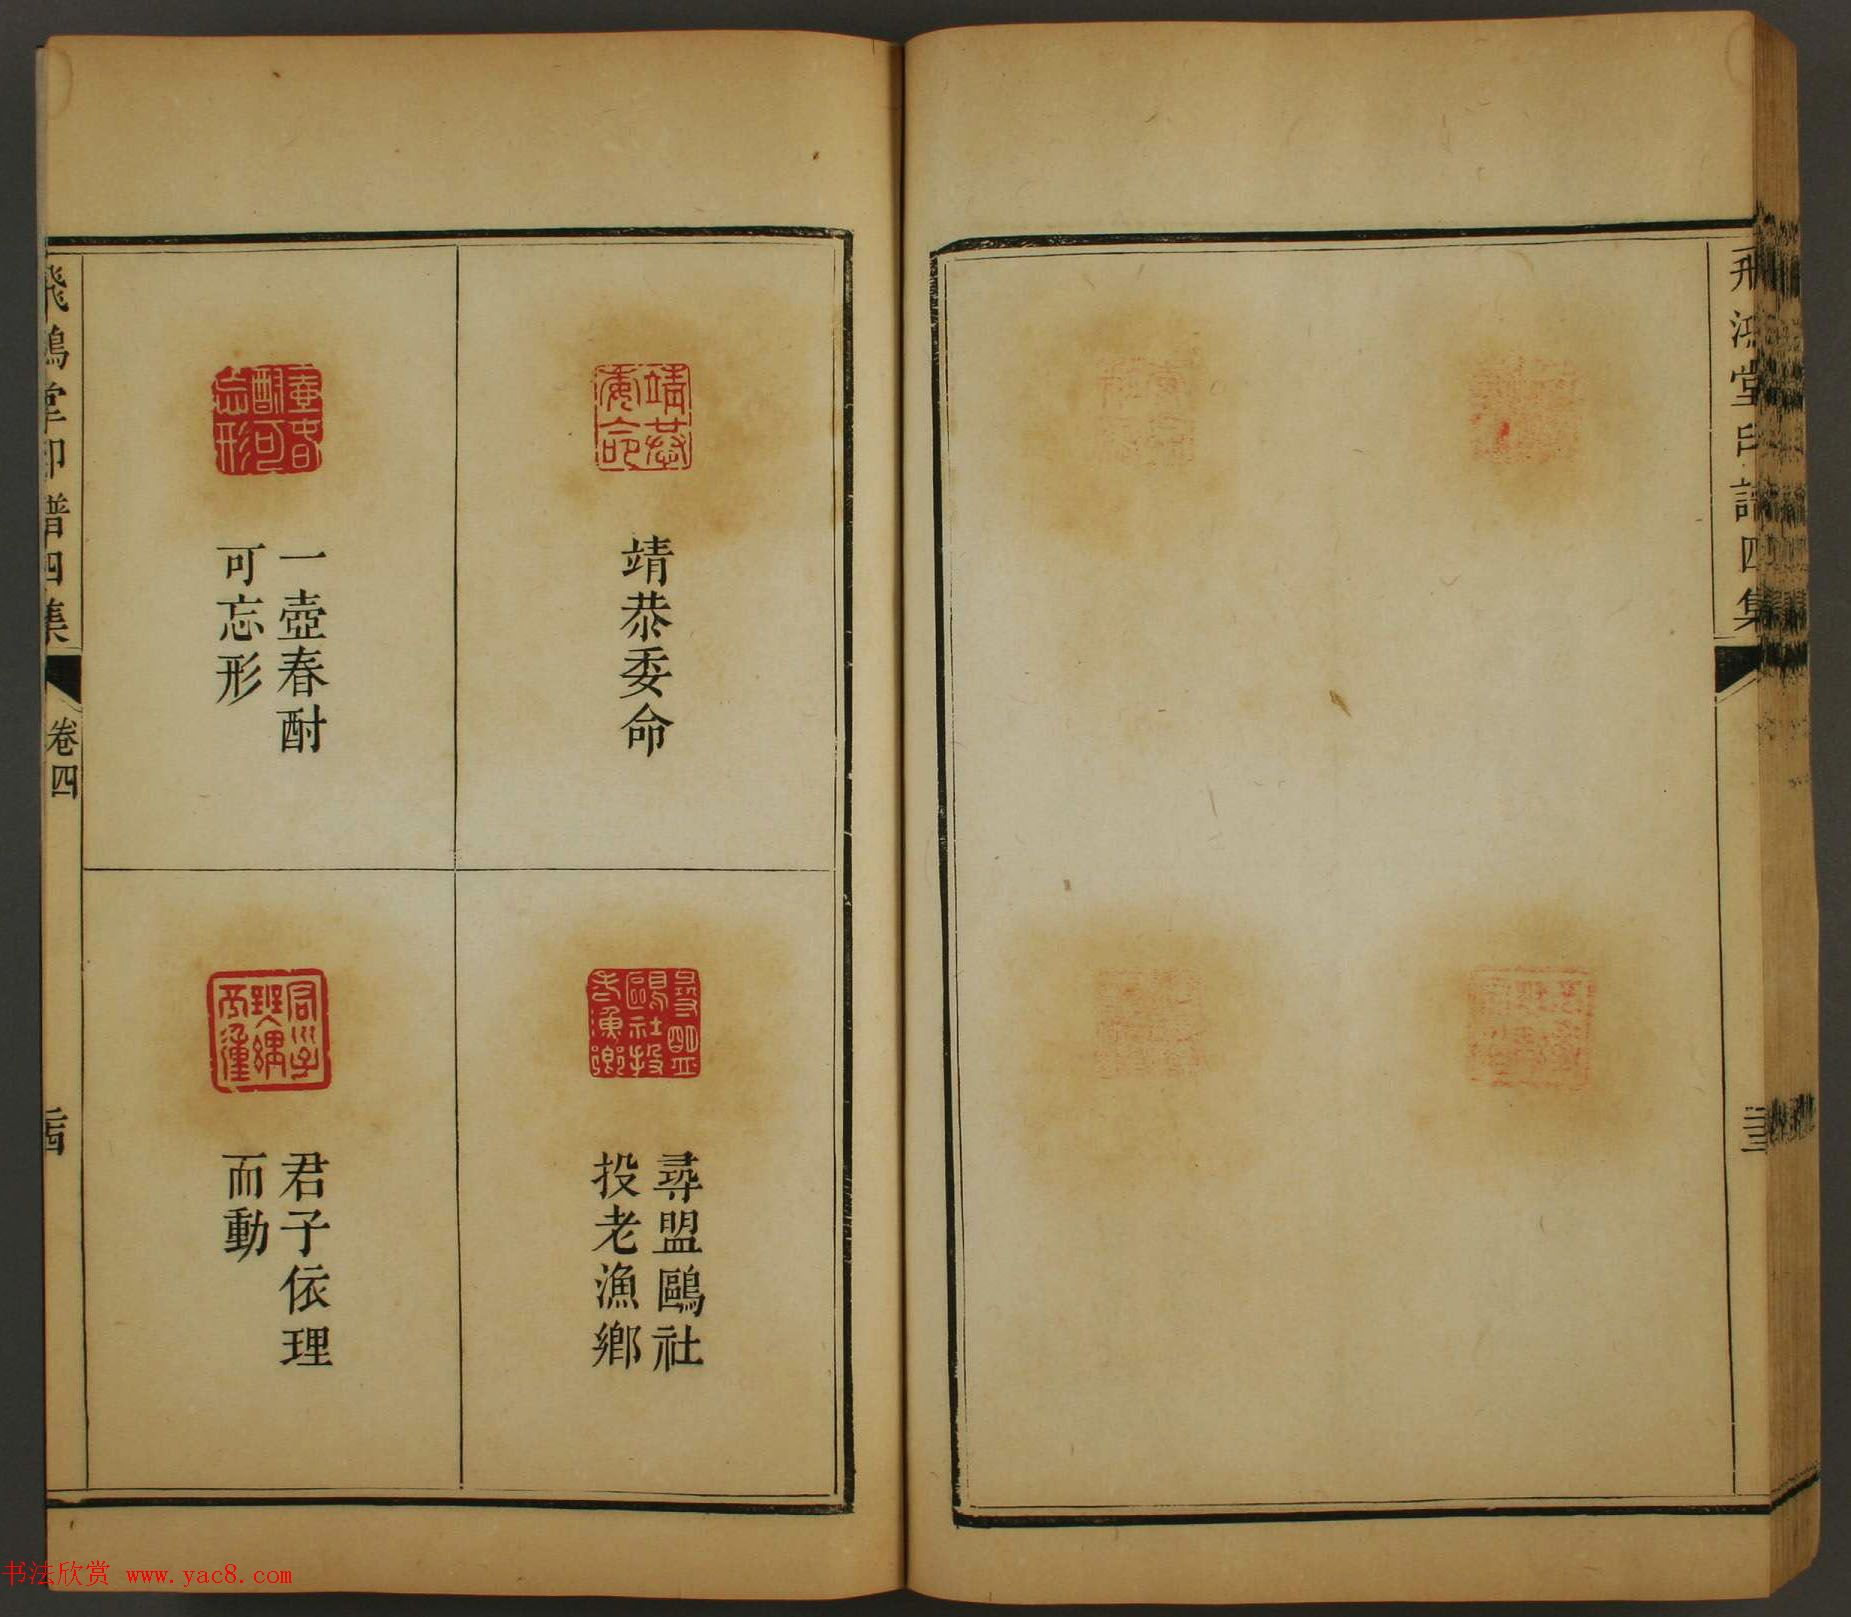 飛鴻堂印譜四集
二三
靖恭委命
尋盟鷗社
投老漁鄉
一壺春酎
可忘形
君子依理
而動
飛鴻堂印譜四集
卷四
书法欣赏 www.yac8.com